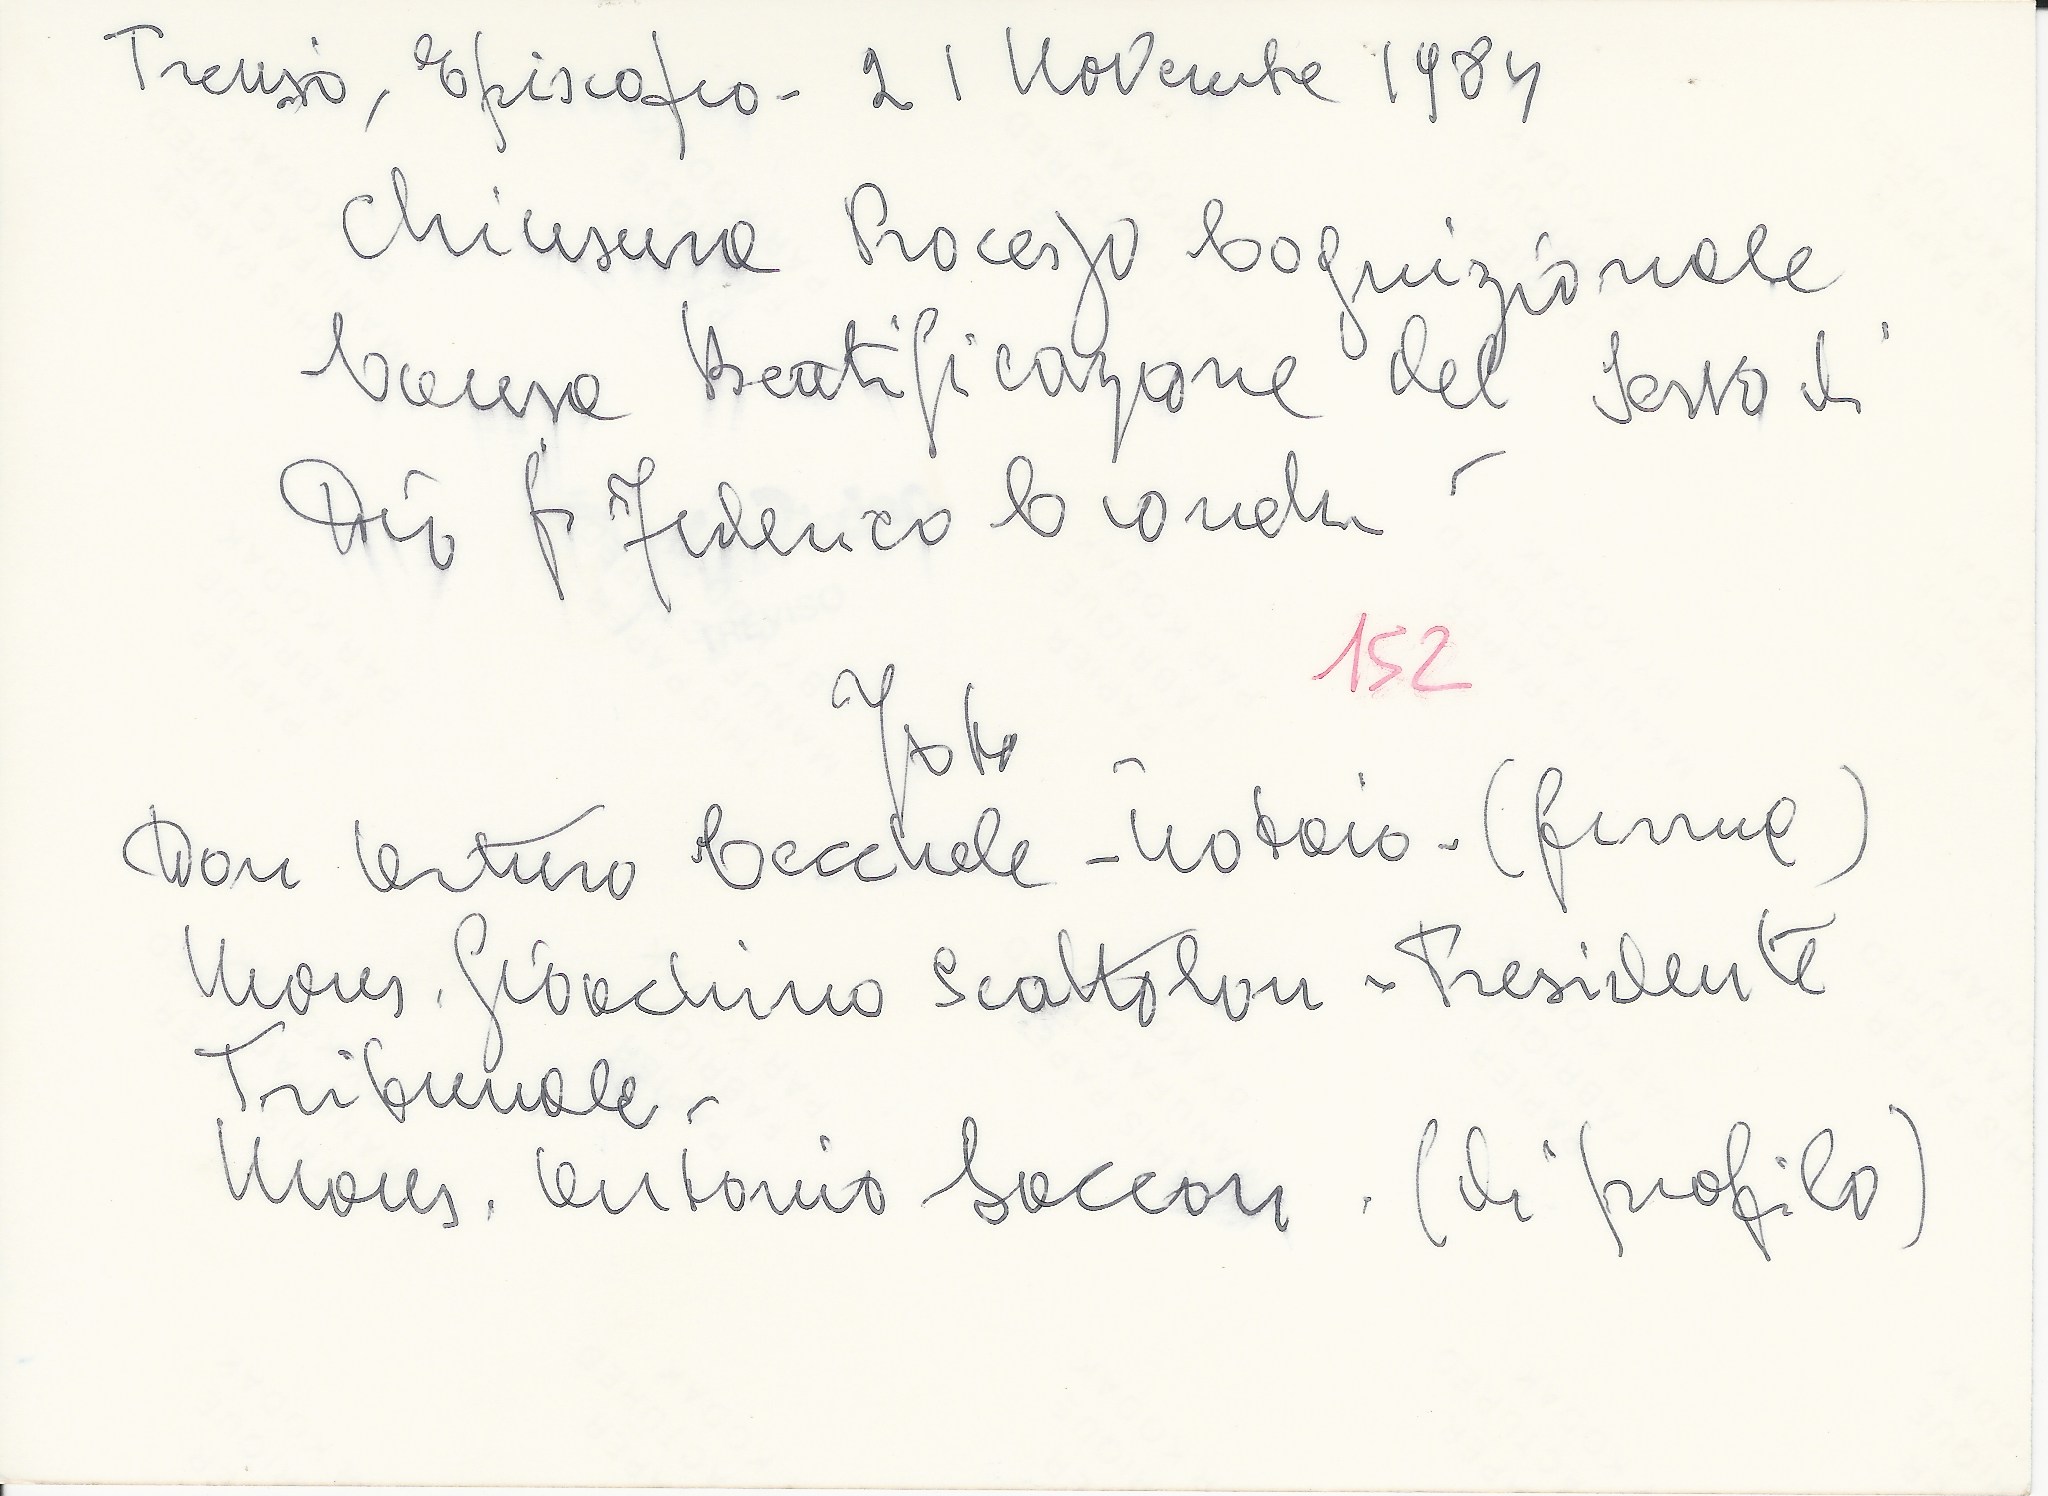 Treviso, Episcopio - 21 Novembre 1984
Chiusura Processo Cognizionale
Causa Beatificazione del Servo di
Dio fr Federico Cionchi -
152
Foto
Don Arturo Cecchele - Notaio - (firma)
Mons. Gioachino Scattolon - Presidente
Tribunale -
Mons. Antonio Saccon . (di profilo)